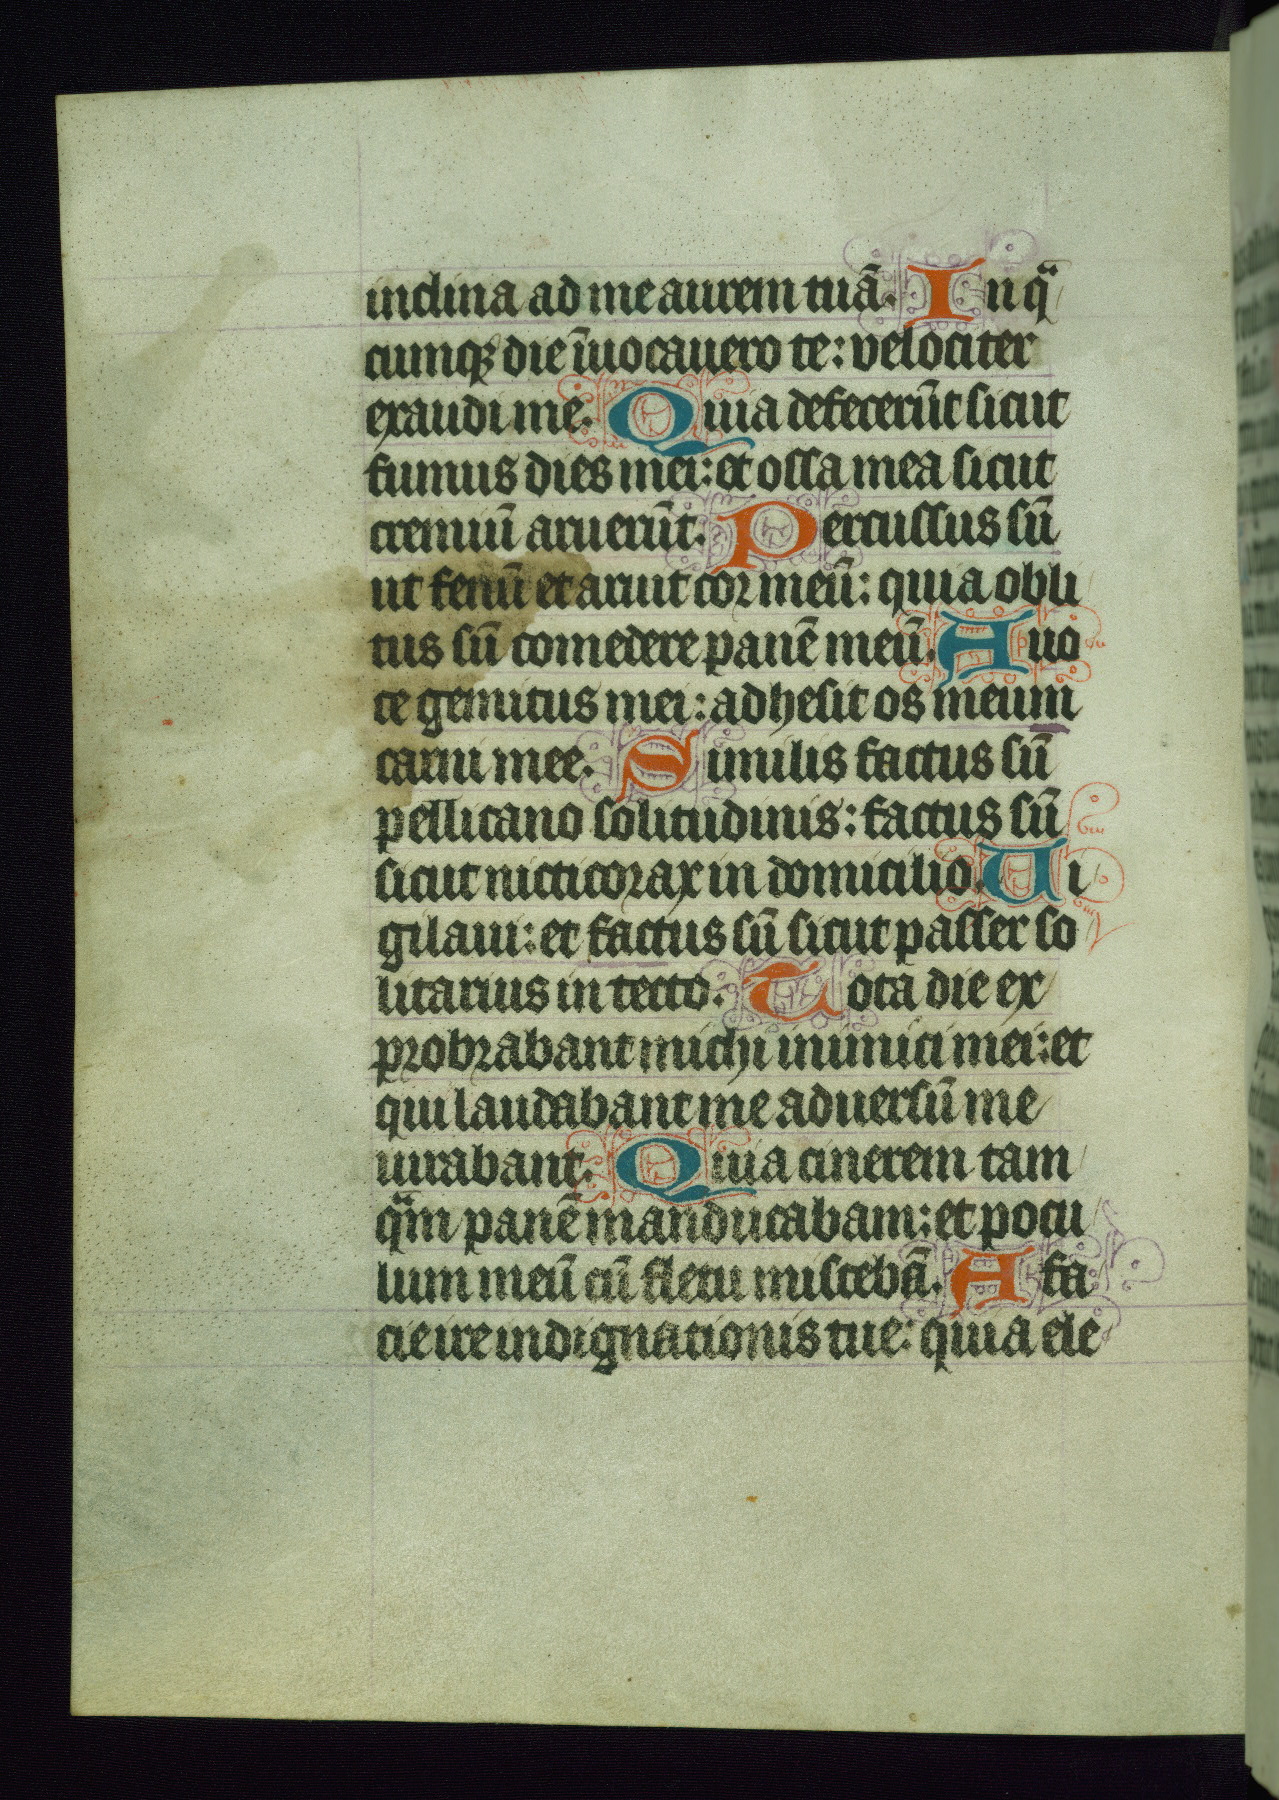 inclina ad me aurem tuā. In qͣ
cunqꝫ die īuocauero te: velociter
exaudi me. Quia defecerūt sicut
fumus dies mei: et ossa mea sicut
cremiū aruerūt. Percussus sū
ut fenū et aruit cor meū: quia obli
tus sū comedere panē meū. A uo
ce gemitus mei: adhesit os meum
carni mee. Similis factus sū
pellicano solitudinis: factus sū
sicut nicticorax in domicilio. Ui
gilaui: et factus sū sicut passer so
litarius in tecto. Tota die ex
probrabant michi inimici mei: et
qui laudabant me aduersū me
iurabant. Quia cinerem tam
qͣm panē manducabam: et pocu
lum meū cū fletu miscebā. A fa
cie ire indignationis tue: quia ele